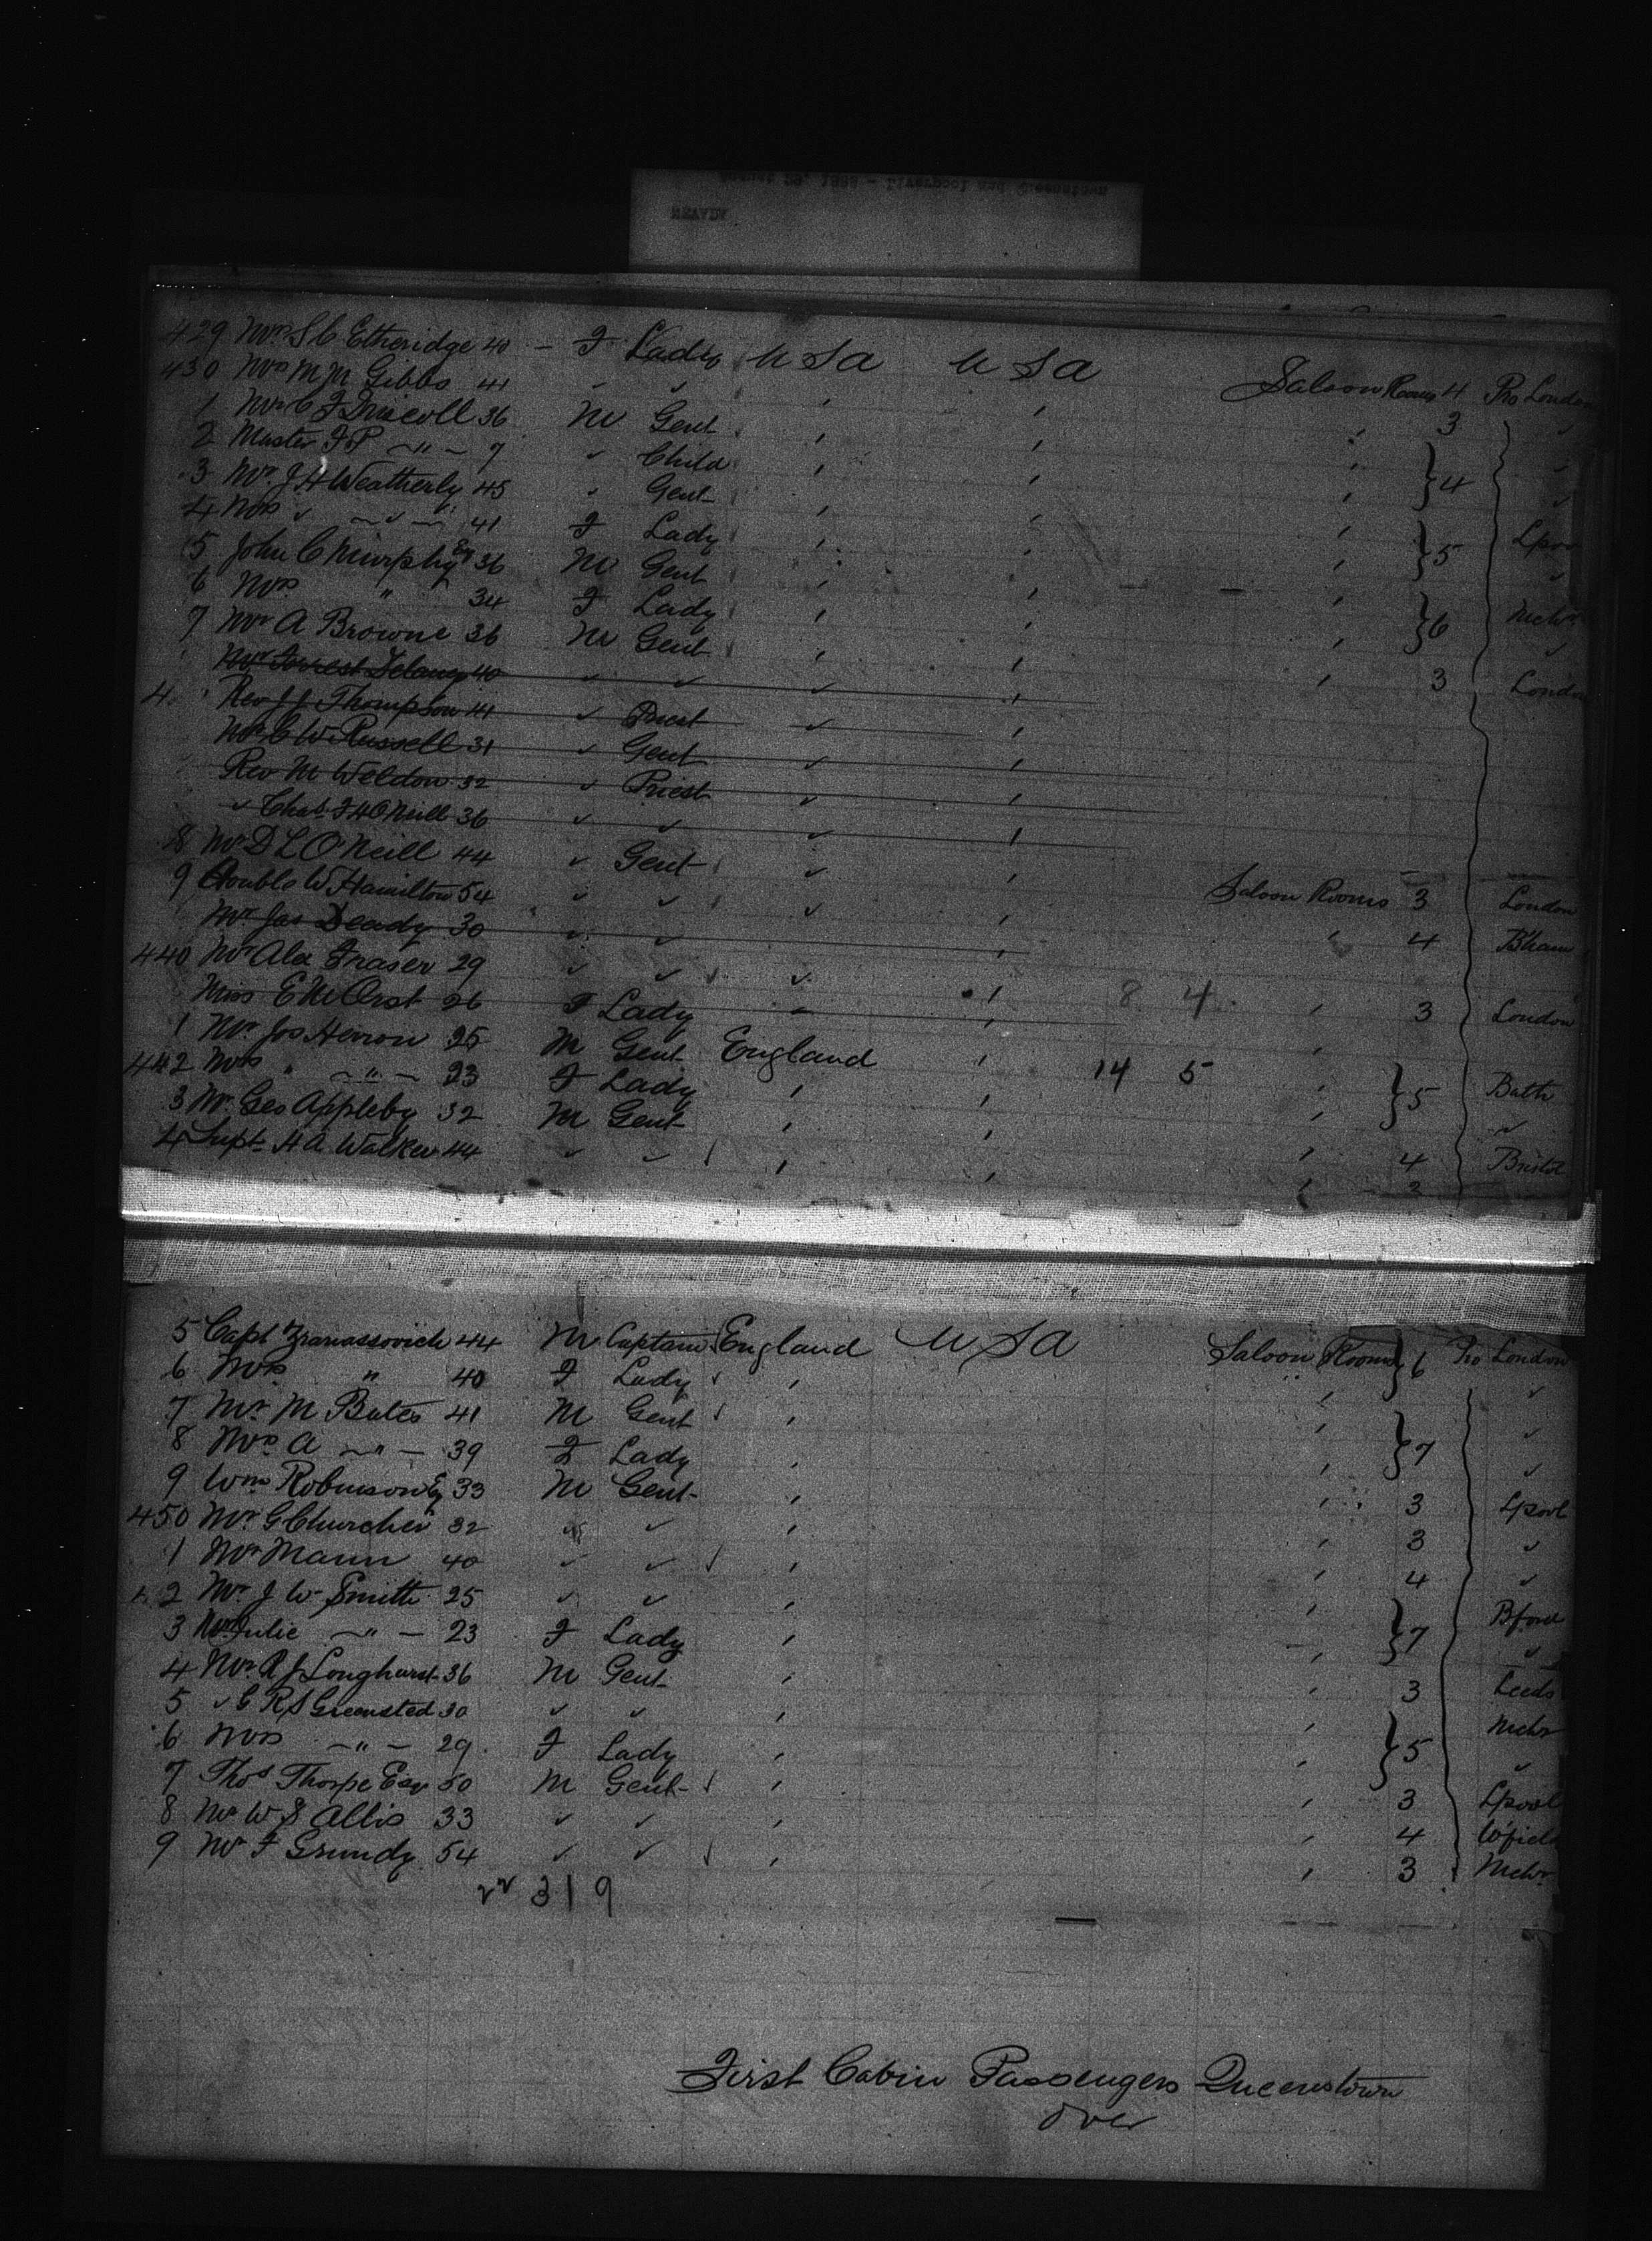 429 Mrs S C Etheridge 40 - F Lady U S A U S A Saloon Rooms 4 Pro London
430 Mrs M M Gibbs 41 ✓ ✓ ' ' ' 3 ✓
1 Mr C F Driscoll 36 M Gent ' ' ' } 4 ✓
2 Master F P ~ " ~ 7 ✓ Child ' ' ' ✓
3 Mr J H Weatherly 45 ✓ Gent ' ' ' } 5 Lpool
4 Mrs ✓ ~ ✓ ~ 41 F Lady ' ' ' ✓
5 John C Murphy Esq 36 M Gent ' ' ' } 6 Mchr
6 Mrs " 34 F Lady ' ' ' ✓
7 Mr A Browne 36 M Gent ' ' ' 3 London
Mr Forrest 40 ✓ ✓ ✓ '
Rev J J Thompson 41 ✓ Priest ✓ '
Mr C W Russell 31 ✓ Gent ✓ '
Rev M Weldon 32 ✓ Priest ✓ '
✓ Chas F H O'Neill 36 ✓ ✓ ✓ '
8 Mr D L O'Neill 44 ✓ Gent ✓ ' Saloon Rooms 3 London
9 W Hamilton 54 ✓ ✓ ✓ ' ' 4 B'ham
Mr Jas Deady 30 ✓ ✓ '
440 Mr Alex Fraser 29 ✓ ✓ ✓ ' 8 4 ' 3 London
Miss E M 26 F Lady ' '
1 Mr Jos Herron 25 M Gent England ' 14 5 ' } 5 Bath
442 Mrs " ~ " ~ 23 F Lady ' ' ' ✓
3 Mr Geo Appleby 32 M Gent ' ' ' 4 Bristol
4 Supt H A Walker 44 ✓ ✓ ' ' ' 2
5 Capt Zranassovich 44 M Captain England U S A Saloon Rooms } 6 Pro London
6 Mrs " 40 F Lady ' ' ✓
7 Mr M Bates 41 M Gent ' ' } 7 ✓
8 Mrs A ~ " ~ 39 F Lady ' ' ✓
9 Wm Robinson Esq 33 M Gent ' ' 3 Lpool
450 Mr G Churcher 32 ✓ ✓ ' ' 3 ✓
1 Mr Mann 40 ✓ ✓ ' ' 4 ✓
2 Mr J W Smith 25 ✓ ✓ ' ' } 7 Bford
3 Mrs Julie ~ " ~ 23 F Lady ' ' ✓
4 Mr R J Longhurst 36 M Gent ' ' 3 Leeds
5 ✓ G R S Greensted 30 ✓ ✓ ' ' } 5 Mchr
6 Mrs ~ " ~ 29 F Lady ' ' ✓
7 Thos Thorpe Esq 50 M Gent ' ' 3 Lpool
8 Mr W S Allis 33 ✓ ✓ ' ' 4 W'field
9 Mr F Grundy 54 ✓ ✓ ' ' 3 Mchr
319
First Cabin Passengers Queenstown
over